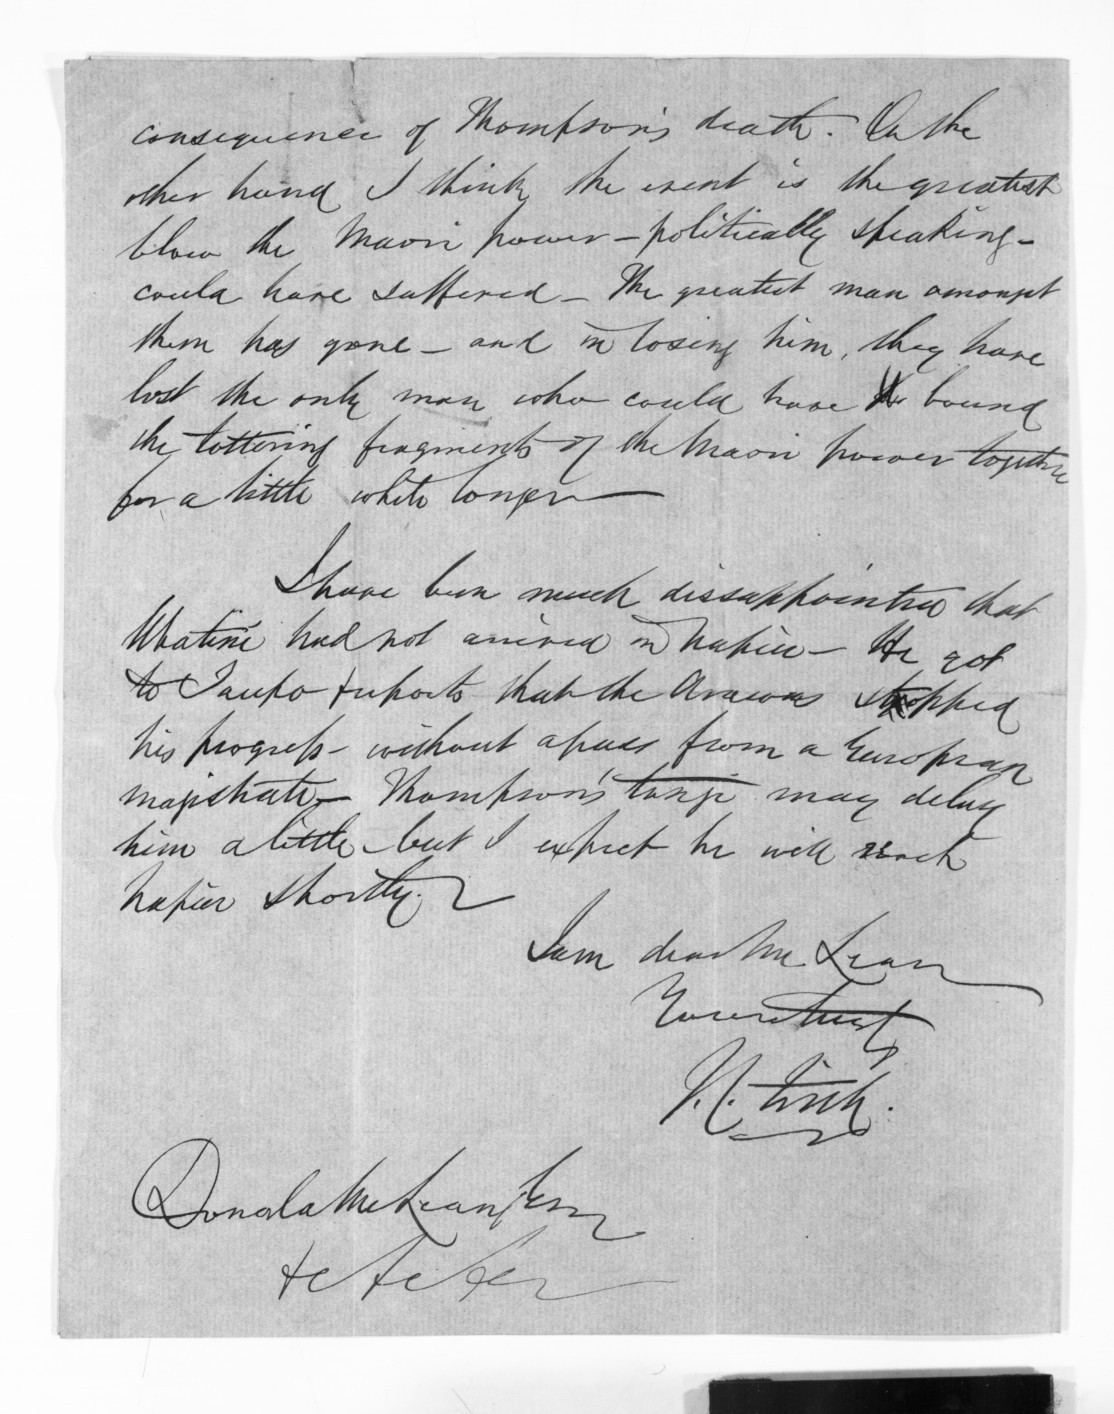 consequence of Thompson's death. On the
other hand I think the event is the greatest
blow the Maori power - politically speaking -
could have suffered - The greatest man amongst
them has gone - and in losing him, they have
lost the only man who could have bound
the tottering fragments of the Maori power together
for a little while longer -
I have been much dissappointed that
had not arrived in Napier - He got
to Taupo & reports that the Arawas stopped
his progress - without a pass from a European
magistrate - Thompson's tangi may delay
him a little - but I expect he will reach
Napier shortly.
I am dear McLean
Yours truly
Donald McLean Esqr
&c &c &c